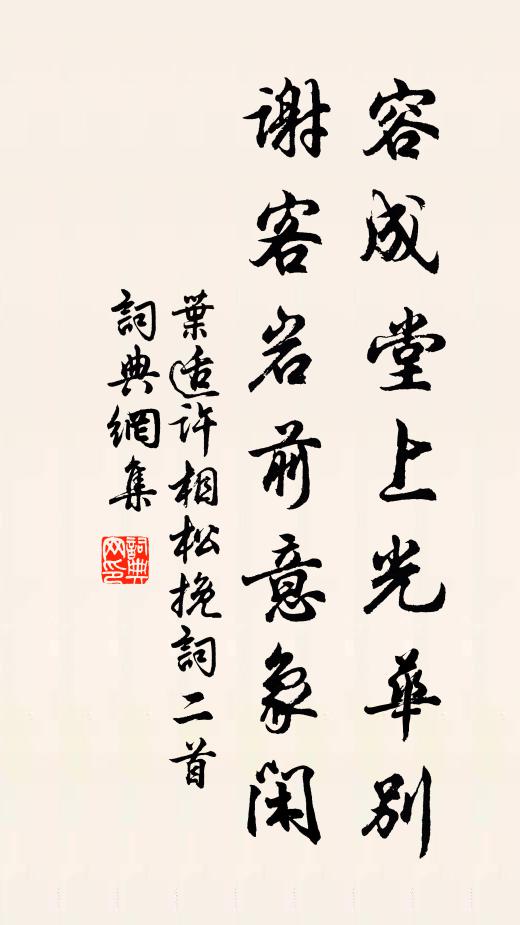 容成堂上光華别
謝客岩前意象閑
葉适許相松挽詞二首
詞典網集
詞典網印